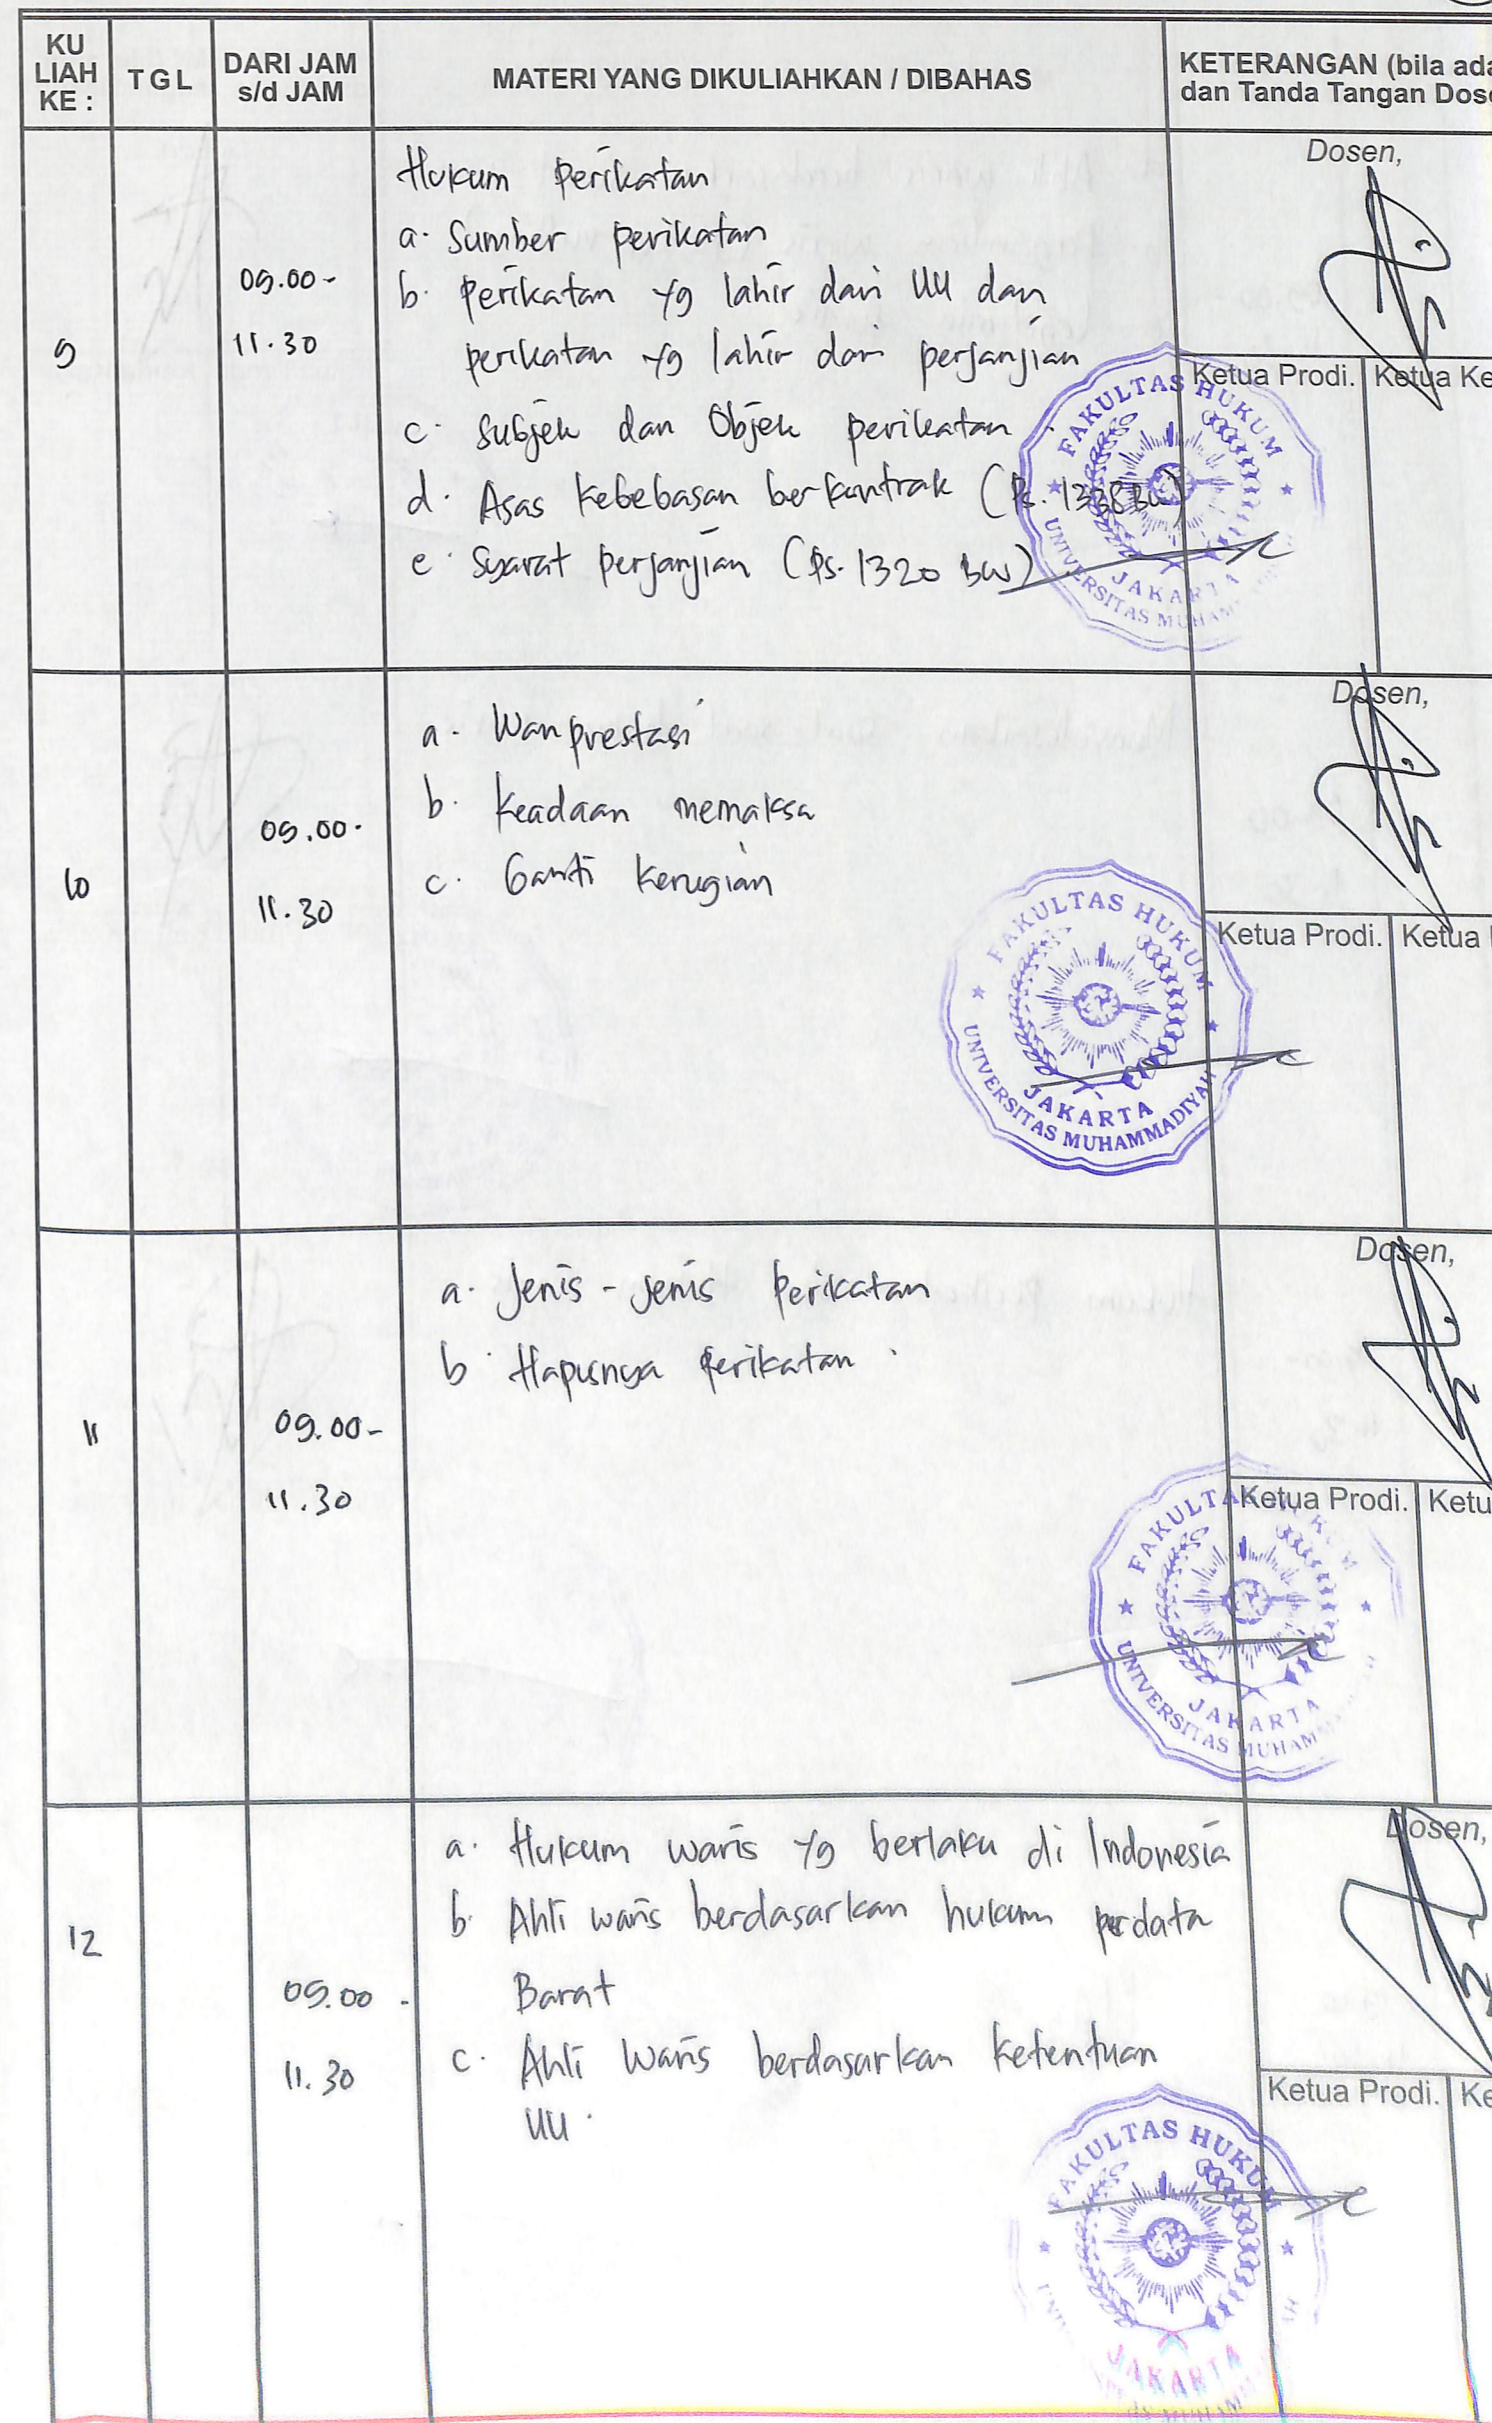 KU LIAH KE :
TGL
DARI JAM s/d JAM
MATERI YANG DIKULIAHKAN / DIBAHAS
KETERANGAN (bila ada
dan Tanda Tangan Dose
9
09.00 -
11.30
Hukum Perikatan
a. Sumber perikatan
b. Perikatan yg lahir dari UU dan
perikatan yg lahir dari perjanjian
c. Subjek dan Objek perikatan.
d. Asas kebebasan berkontrak (Ps. 1338 BW)
e. Syarat perjanjian (Ps. 1320 BW)
Dosen,
Ketua Prodi.
Ketua Ke
FAKULTAS HUKUM
JAKARTA
UNIVERSITAS
10
09.00 -
11.30
a. Wanprestasi
b. Keadaan memaksa
c. Ganti kerugian
Dosen,
Ketua Prodi.
Ketua
FAKULTAS HUKUM
JAKARTA
UNIVERSITAS MUHAMMADIYAH
11
09.00 -
11.30
a. Jenis - Jenis Perikatan
b. Hapusnya Perikatan.
Dosen,
Ketua Prodi.
Ketu
JAKARTA
UNIVERSITAS
12
09.00 -
11.30
a. Hukum waris yg berlaku di Indonesia
b. Ahli waris berdasarkan hukum perdata
Barat
c. Ahli waris berdasarkan ketentuan
UU.
Dosen,
Ketua Prodi.
Ke
FAKULTAS HUKUM
JAKARTA